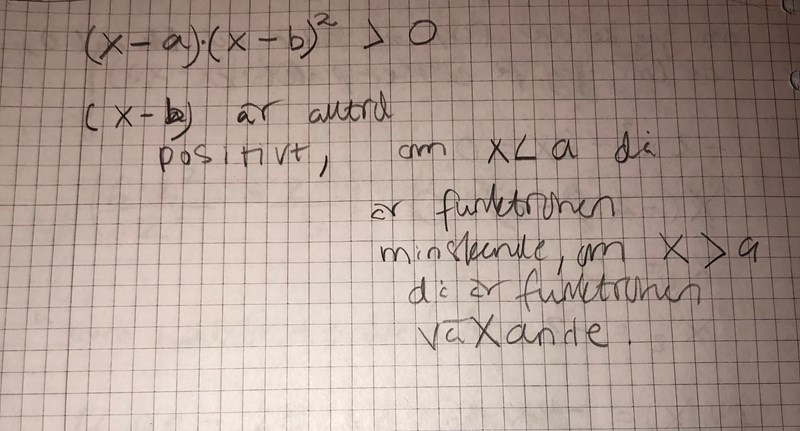 (x-a)·(x-b)² > 0
(x-b) är alltid
positivt, om x<a då
är funktionen
minskande, om x>a
då är funktionen
växande.